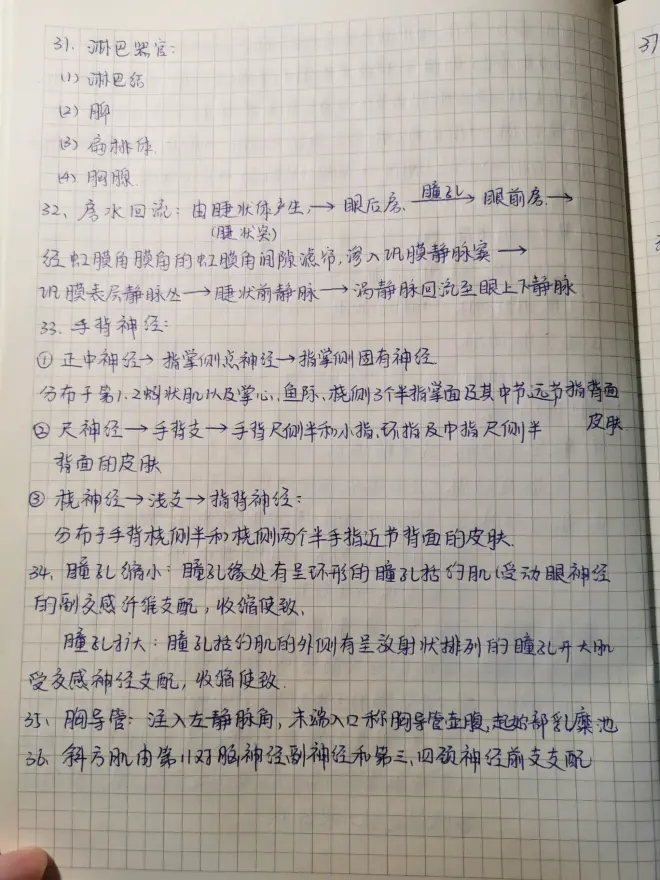 31. 淋巴器官:
(1) 淋巴结
(2) 脾
(3) 扁桃体
(4) 胸腺
32、房水回流: 由睫状体产生,→眼后房、瞳孔→眼前房、→
(睫状突)
经虹膜角膜角的虹膜角间隙滤帘,渗入巩膜静脉窦→
巩膜表层静脉丛→睫状前静脉→涡静脉回流至眼上下静脉
33. 手背神经:
① 正中神经→指掌侧总神经→指掌侧固有神经
分布于第1.2蚓状肌以及掌心、鱼际、桡侧3个半指掌面及其中节、远节指背面
皮肤
② 尺神经→手背支→手背尺侧半和小指、环指及中指尺侧半
背面的皮肤
③ 桡神经→浅支→指背神经:
分布于手背桡侧半和桡侧两个半手指近节背面的皮肤.
34、瞳孔缩小: 瞳孔缘处有呈环形的瞳孔括约肌(受动眼神经
的副交感纤维支配,收缩使致、
瞳孔扩大: 瞳孔括约肌的外侧有呈放射状排列的瞳孔开大肌
受交感神经支配,收缩使致.
35、胸导管: 注入左静脉角,末端入口称胸导管壶腹,起始部乳糜池
36、斜方肌由第11对脑神经副神经和第三、四颈神经前支支配
37